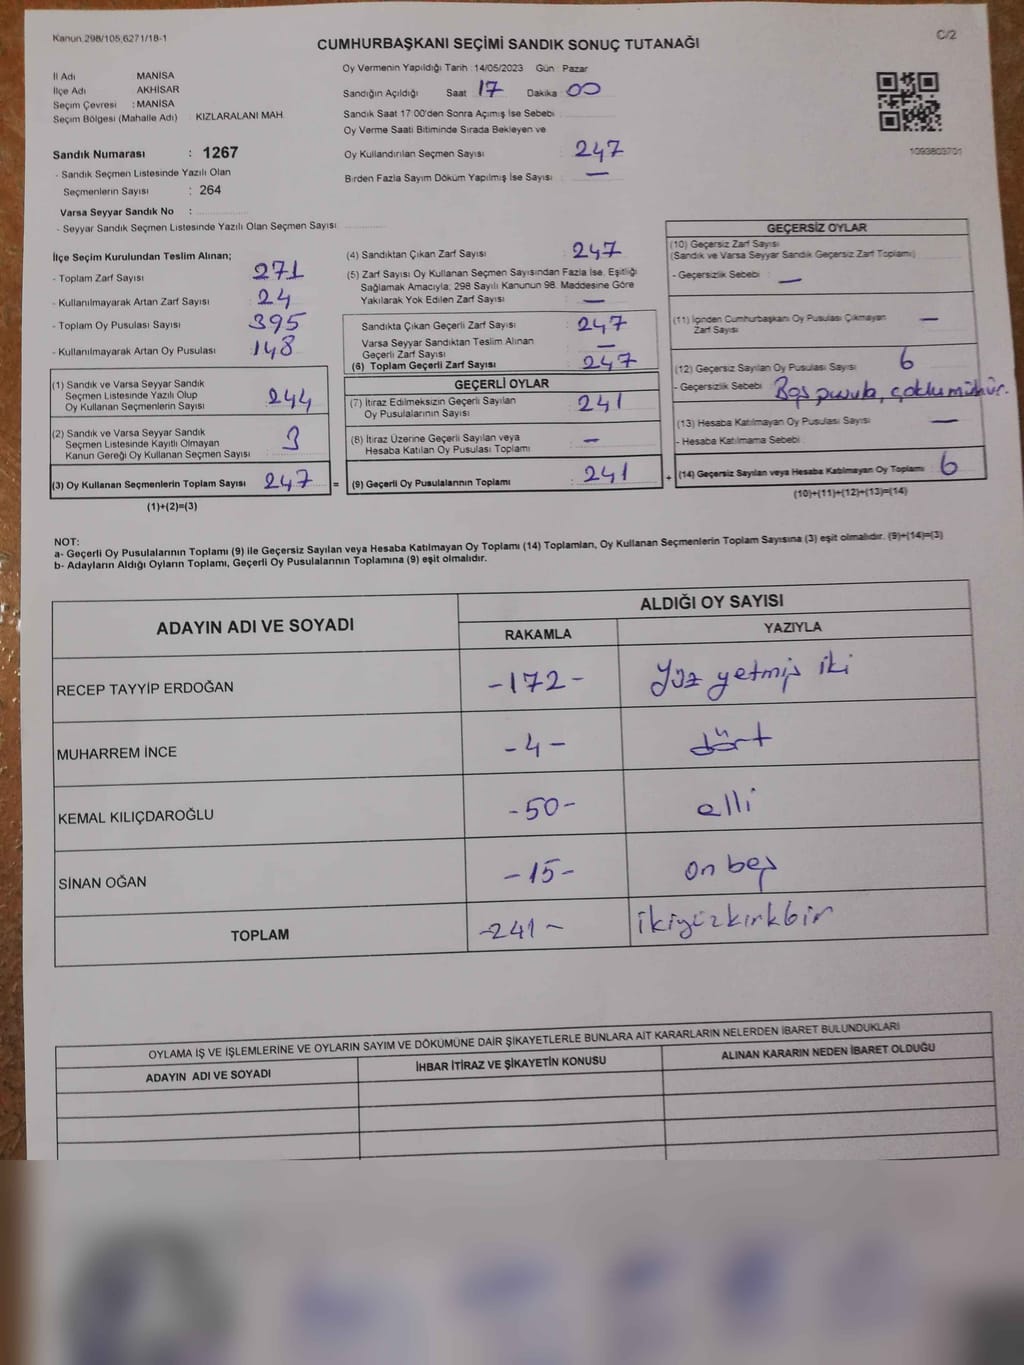 Kanun 298/105,6271/18-1
C/2
CUMHURBAŞKANI SEÇİMİ SANDIK SONUÇ TUTANAĞI
İl Adı MANİSA
İlçe Adı AKHİSAR
Seçim Çevresi : MANİSA
Seçim Bölgesi (Mahalle Adı) : KIZLARALANI MAH
Sandık Numarası : 1267
- Sandık Seçmen Listesinde Yazılı Olan
Seçmenlerin Sayısı : 264
Varsa Seyyar Sandık No :
- Seyyar Sandık Seçmen Listesinde Yazılı Olan Seçmen Sayısı
Oy Vermenin Yapıldığı Tarih : 14/05/2023 Gün : Pazar
Sandığın Açıldığı Saat 17 Dakika 00
Sandık Saat 17:00'den Sonra Açımış İse Sebebi
Oy Verme Saati Bitiminde Sırada Bekleyen ve
Oy Kullandırılan Seçmen Sayısı : 247
Birden Fazla Sayım Döküm Yapılmış İse Sayısı : —
1093803701
İlçe Seçim Kurulundan Teslim Alınan;
- Toplam Zarf Sayısı : 271
- Kullanılmayarak Artan Zarf Sayısı : 24
- Toplam Oy Pusulası Sayısı : 395
- Kullanılmayarak Artan Oy Pusulası : 148
(1) Sandık ve Varsa Seyyar Sandık
Seçmen Listesinde Yazılı Olup
Oy Kullanan Seçmenlerin Sayısı : 244
(2) Sandık ve Varsa Seyyar Sandık
Seçmen Listesinde Kayıtlı Olmayan
Kanun Gereği Oy Kullanan Seçmen Sayısı : 3
(3) Oy Kullanan Seçmenlerin Toplam Sayısı : 247 =
(1)+(2)=(3)
(4) Sandıktan Çıkan Zarf Sayısı : 247
(5) Zarf Sayısı Oy Kullanan Seçmen Sayısından Fazla İse, Eşitliği
Sağlamak Amacıyla; 298 Sayılı Kanunun 98. Maddesine Göre
Yakılarak Yok Edilen Zarf Sayısı : —
Sandıkta Çıkan Geçerli Zarf Sayısı : 247
Varsa Seyyar Sandıktan Teslim Alınan
Geçerli Zarf Sayısı : —
(6) Toplam Geçerli Zarf Sayısı : 247
GEÇERLİ OYLAR
(7) İtiraz Edilmeksizin Geçerli Sayılan
Oy Pusulalarının Sayısı : 241
(8) İtiraz Üzerine Geçerli Sayılan veya
Hesaba Katılan Oy Pusulası Toplamı : —
(9) Geçerli Oy Pusulalarının Toplamı : 241 +
GEÇERSİZ OYLAR
(10) Geçersiz Zarf Sayısı
(Sandık ve Varsa Seyyar Sandık Geçersiz Zarf Toplamı)
- Geçersizlik Sebebi : —
(11) İçinden Cumhurbaşkanı Oy Pusulası Çıkmayan
Zarf Sayısı —
(12) Geçersiz Sayılan Oy Pusulası Sayısı : 6
- Geçersizlik Sebebi : Boş pusula, çoklu mühür.
(13) Hesaba Katılmayan Oy Pusulası Sayısı : —
- Hesaba Katılmama Sebebi :
(14) Geçersiz Sayılan veya Hesaba Katılmayan Oy Toplamı : 6
(10)+(11)+(12)+(13)=(14)
NOT:
a- Geçerli Oy Pusulalarının Toplamı (9) ile Geçersiz Sayılan veya Hesaba Katılmayan Oy Toplamı (14) Toplamları, Oy Kullanan Seçmenlerin Toplam Sayısına (3) eşit olmalıdır. (9)+(14)=(3)
b- Adayların Aldığı Oyların Toplamı, Geçerli Oy Pusulalarının Toplamına (9) eşit olmalıdır.
ADAYIN ADI VE SOYADI
ALDIĞI OY SAYISI
RAKAMLA YAZIYLA
RECEP TAYYİP ERDOĞAN -172- Yüz yetmiş iki
MUHARREM İNCE -4- dört
KEMAL KILIÇDAROĞLU -50- elli
SİNAN OĞAN -15- on beş
TOPLAM -241- ikiyüzkırkbir
OYLAMA İŞ VE İŞLEMLERİNE VE OYLARIN SAYIM VE DÖKÜMÜNE DAİR ŞİKAYETLERLE BUNLARA AİT KARARLARIN NELERDEN İBARET BULUNDUKLARI
ADAYIN ADI VE SOYADI İHBAR İTİRAZ VE ŞİKAYETİN KONUSU ALINAN KARARIN NEDEN İBARET OLDUĞU